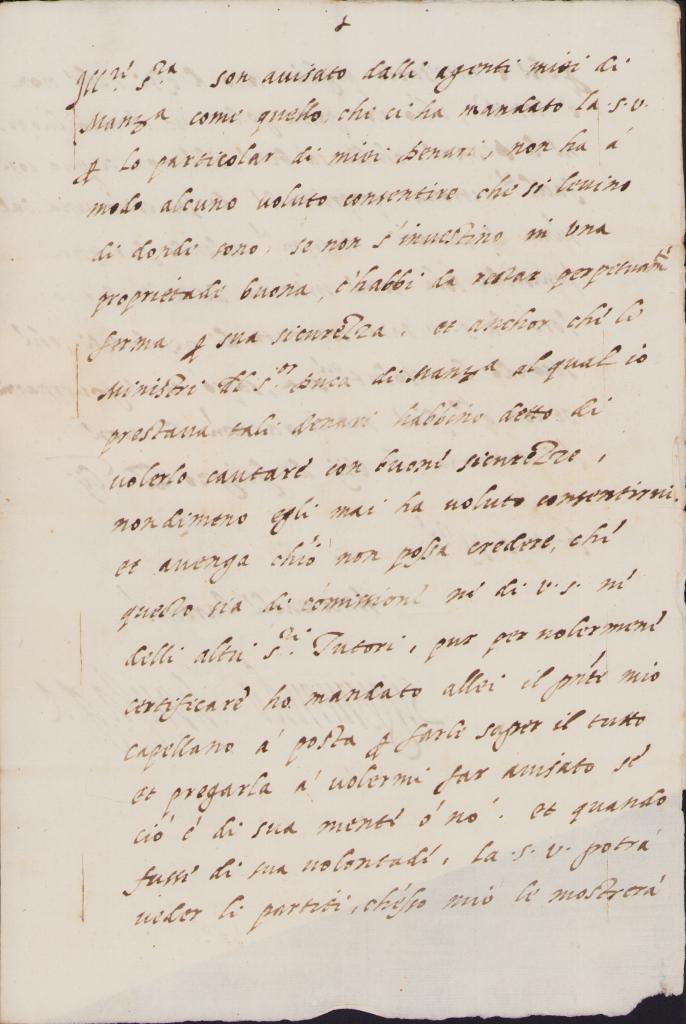 Ill.ri s.ra son auisato dalli agenti miei di
Manza come quello, che ci ha mandato la .s.v.
p lo particolar di miei Denari, non ha á
modo alcuno voluto consentire che si levino
di donde sono, se non s'investino in una
proprietade buona, c'habbi da restar perpetuam.te
ferma p sua sicurezza. et anchor ché le
Ministri del s.or Duca di Manza al qual io
prestava tali denari habbino detto di
volerlo cautaré con buoné sicurezze,
nondimeno egli mai ha voluto consentirvi.
et auenga ch'io non possa credere, ché
questo sia di cómissioné né di v.s. né
delli altri s.ri Tutori, pur per volermené
certificaré ho mandato allei il pnte mio
capellano á posta p farle saper il tutto
et pregarla á volermi far auisato sé
ció é di sua menté ó nó. et quando
fussé di sua volontadé, la .s.v. potrá
veder li partiti, ch'esso mió le mostrerá